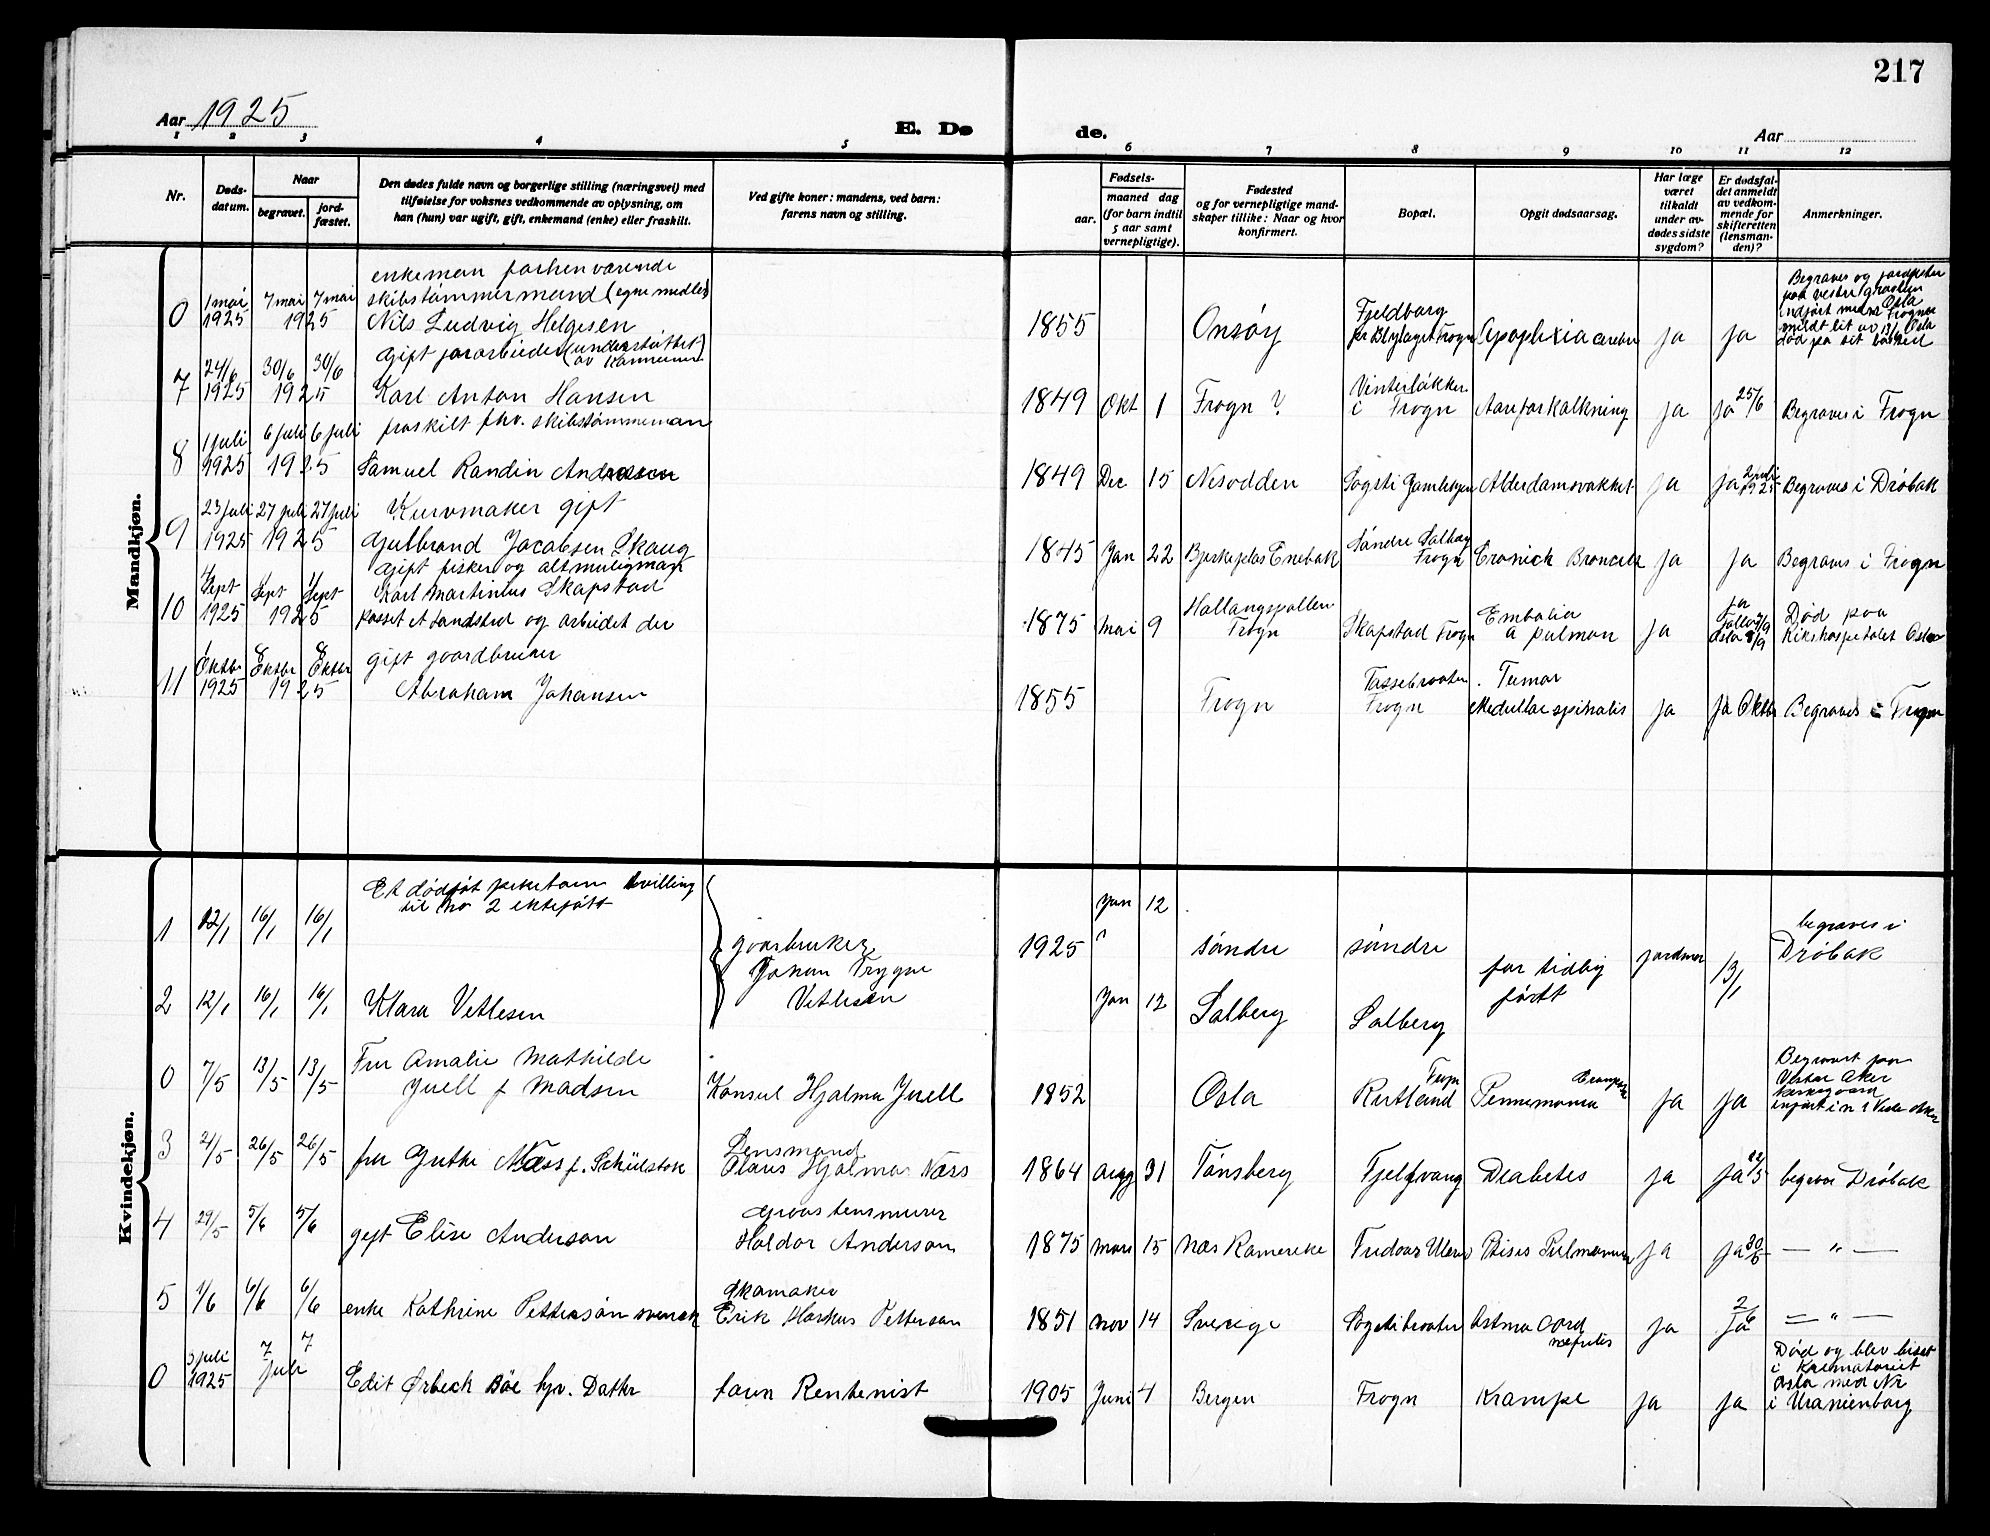 217
Aar 1925
E. Dø de.
Aar
1 2 3 4 5 6 7 8 9 10 11 12
Nr.
Døds-
datum.
Naar
begravet.
jord-
fæstet.
Den dødes fulde navn og borgerlige stilling (næringsvei) med
tilføielse for voksnes vedkommende av oplysning, om
han (hun) var ugift, gift, enkemand (enke) eller fraskilt.
Ved gifte koner: mandens, ved barn:
farens navn og stilling.
Fødsels-
aar.
maaned dag
(for barn indtil
5 aar samt
vernepligtige).
Fødested
og for vernepligtige mand-
skaper tillike: Naar og hvor
konfirmert.
Bopæl.
Opgit dødsaarsag.
Har læge
været
tilkaldt
under av-
dødes sidste
sygdom?
Er dødsfal-
det anmeldt
av vedkom-
mende for
skifteretten
(lensman-
den)?
Anmerkninger.
Mandkjøn.
0 1 mai 1925 7 mai 7 mai 1925
enkeman forhenværende
skibstømmermand (egne midler)
Nils Ludvig Helgesen
1855 Onsøy Fjeldborg Frogn Apoplexia cerebri ja ja
Begraves og jordfestes
paa vestre gravlund
Oslo
7 24/6 1925 30/6 30/6 1925
gift jorarbeider (understøttet
av kommunen
Karl Anton Hansen
1849 Okt 1 Frogn ? Vinterløkken i Frogn Aareforkalkning ja ja 25/6 Begraves i Frogn
8 1 juli 1925 6 juli 6 juli 1925
fraskilt fhv. skibstømmeman
Samuel Randin Andresen
1849 Dec 15 Nesodden Sogsti Alderdomsvakhet ja ja 2 juli 1925 Begraves i Drøbak
9 23 juli 1925 27 juli 27 juli 1925
Kurvmaker gift
Gulbrand Jacobsen Skaug
1845 Jan 22 Enebak Søndre Solberg Frogn Cronick Broncitt ja ja Begraves i Frogn
10 Sept 1925 Sept Sept 1925
Gift fisker og altmuligman
Karl Martinius Skapstad
1875 Mai 9 Hallangspollen Frogn Skapstad Frogn Embolia a pulmon ja ja Follo Oslo Død paa
Rikshospitalet Oslo
11 Oktbr 1925 8 Oktbr 8 Oktbr 1925
gift gaardbruker
Abraham Johansen
1855 Frogn Frogn Tumor
Medullae spinalis ja ja Oktbr Begraves i Frogn
Kvindekjøn.
1 12/1 16/1 16/1
Et dødføt pikebarn tvilling
til no 2 ektefött
gaarbruker
Johan Trygve
Vetlesen
1925 Jan 12 søndre søndre
for tidlig
født
jordmor 13/1 begraves i
Drøbak
2 12/1 16/1 16/1 Klara Vetlesen
Jan 12 Solberg Solberg
0 7/5 13/5 13/5
Fru Amalie Mathilde
Juell f Madsen
Konsul Hjalmar Juell
1852 Oslo Rutland Frogn Pennemonia ja ja
Begravet paa
Vestre Aker
3 21/5 26/5 26/5 fru Næss f.
Lensmand
Olaus Hjalmar Næss
1864 Aug 31 Tønsberg Fjellvang Diabetes ja ja 22/5 Drøbak
4 29/5 5/6 5/6 gift Elise Anderson
Haldor Anderson
1875 Mars 15 Nes Romerike Ptisis Pulmonum ja ja 30/5 — " —
5 1/6 6/6 6/6 enke Kathrine Pettersøn svensk
skomaker
Erik Markus Petterson
1851 Nov 14 Sverige Sogstibraaten Astma cord
nefritis ja ja 2/6 — " —
0 3 juli 1925 7 7 juli Edit Ørbeck Bøe hjv. Datter
faren Rentenist
1905 Juni 4 Bergen Frogn Krampe ja ja
Død og blev biset
i Krematoriet
Oslo med Nr
i Uranienborg